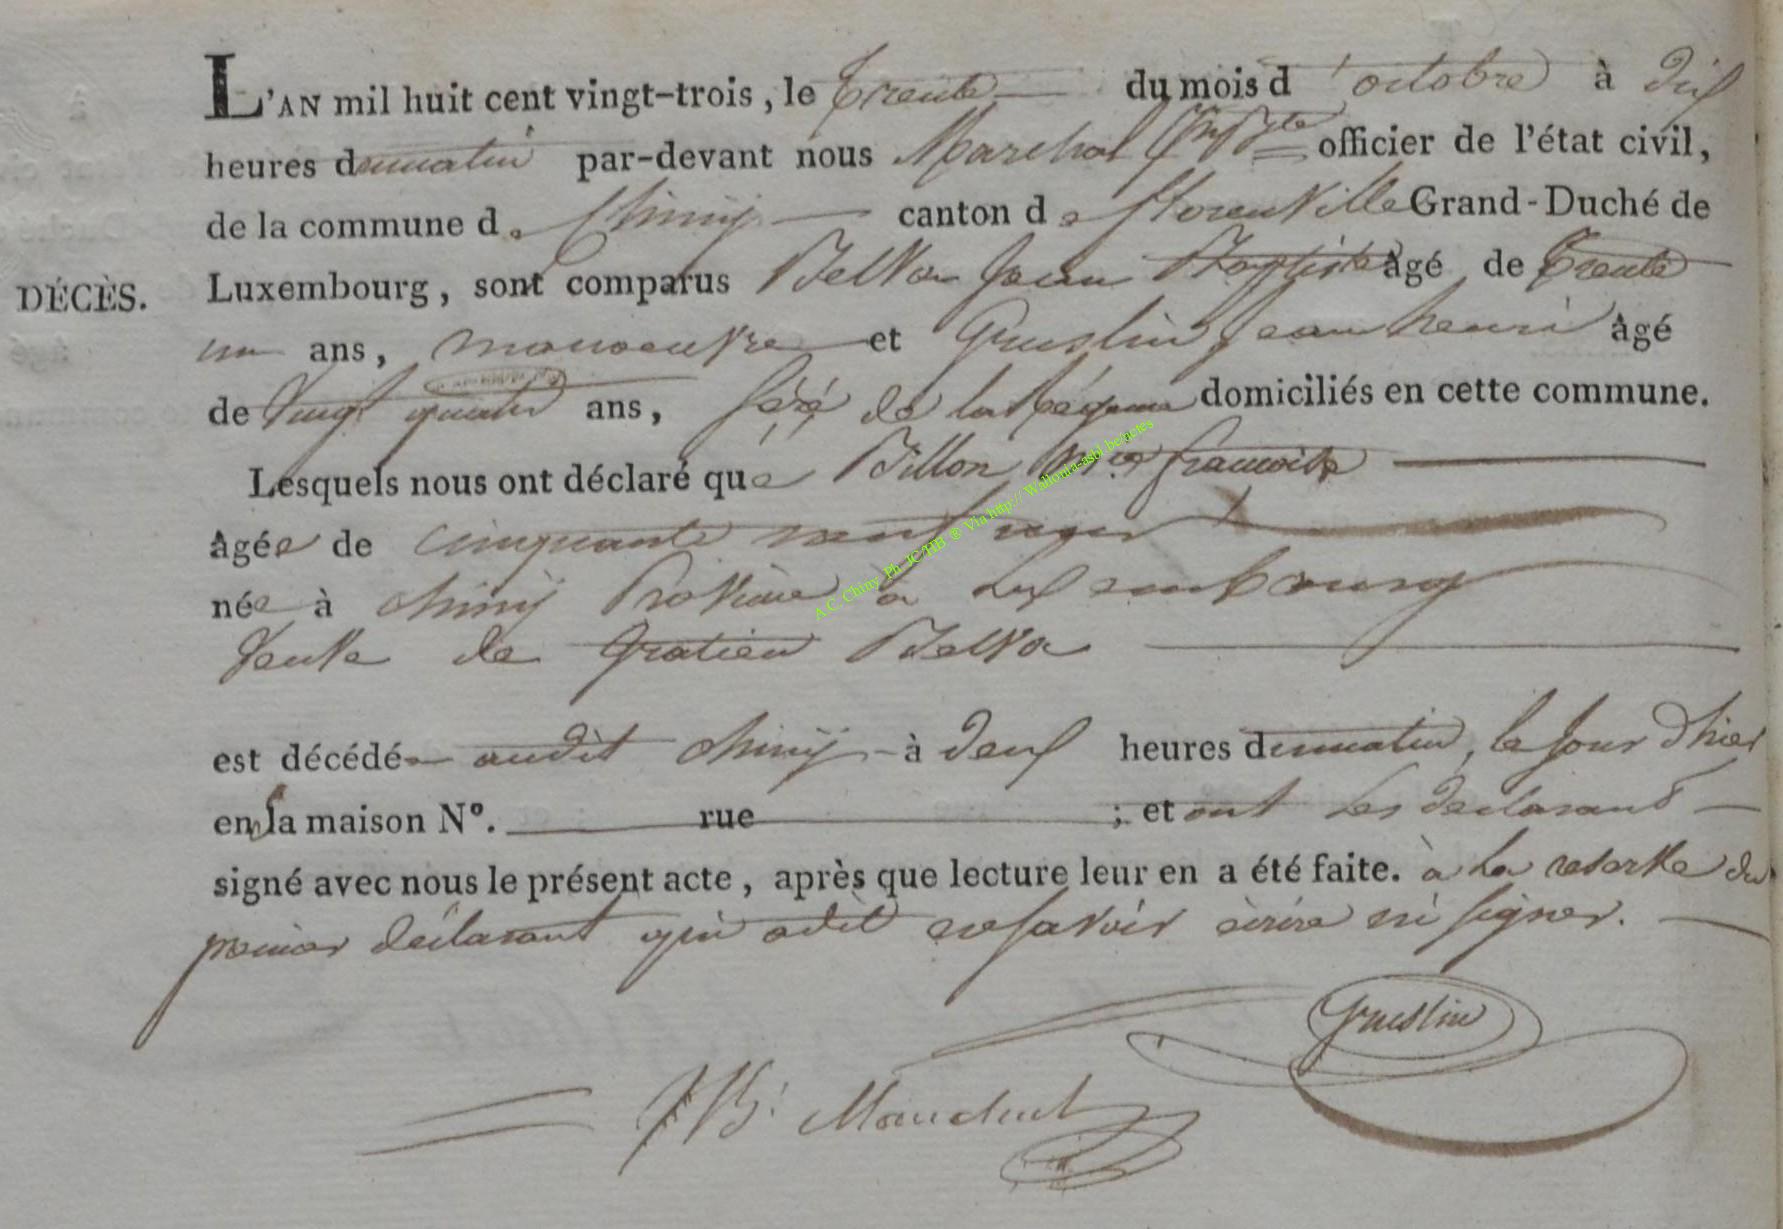 L'AN mil huit cent vingt-trois, le trente du mois d'octobre à dix
heures dumatin par-devant nous Marechal officier de l'état civil,
de la commune de Chiny canton de florenville Grand-Duché de
DÉCÈS. Luxembourg, sont comparus Belva Jean Baptiste âgé de trente
un ans, manoeuvre et Gruslin Jean henri âgé
de vingt quatre ans, domiciliés en cette commune.
Lesquels nous ont déclaré que Billon françoise
âgée de cinquante neuf
née à chiny Province de Luxembourg
veuve de Gratien Belva
est décédée audit chiny à deux heures dumatin, le jour d'hier
en sa maison N°. rue ; et ont les declarans
signé avec nous le présent acte, après que lecture leur en a été faite. à la reserve du
premier déclarant qui adit nesavoir écrire ni signer.
Gruslin
JB. Marechal
A.C. Chiny Ph JC/HB ® Via http://Wallonia-asbl.be/actes